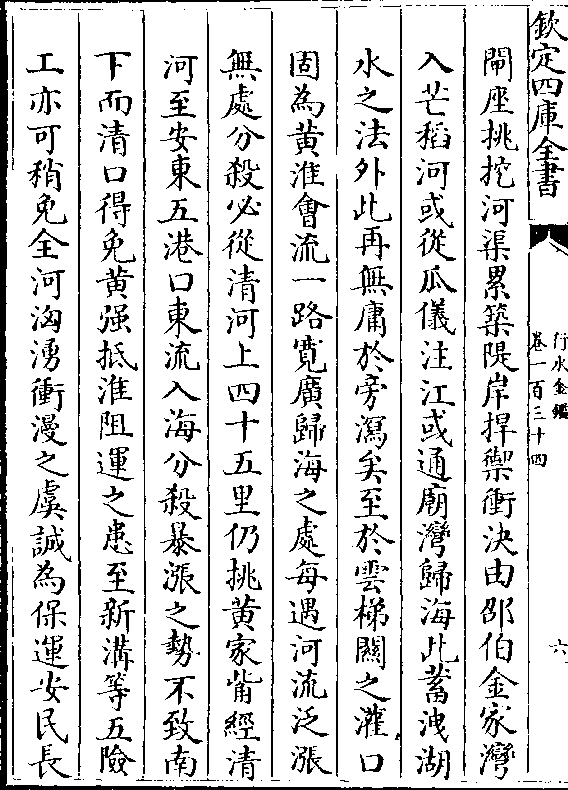 欽定四庫全書
行水金鑑
卷一百三十四
六
閘座挑挖河渠累築隄岸捍禦衝決由邵伯金家灣
入芒稻河或從瓜儀注江或通廟灣歸海此蓄洩湖
水之法外此再無庸於旁瀉矣至於雲梯關之灌口
固為黄淮會流一路寛廣歸海之處每遇河流泛漲
無處分殺必從清河上四十五里仍挑黄家嘴經清
河至安東五港口東流入海分殺暴漲之勢不致南
下而清口得免黄强抵淮阻運之患至新溝等五險
工亦可稍免全河洶湧衝漫之虞誠為保運安民長